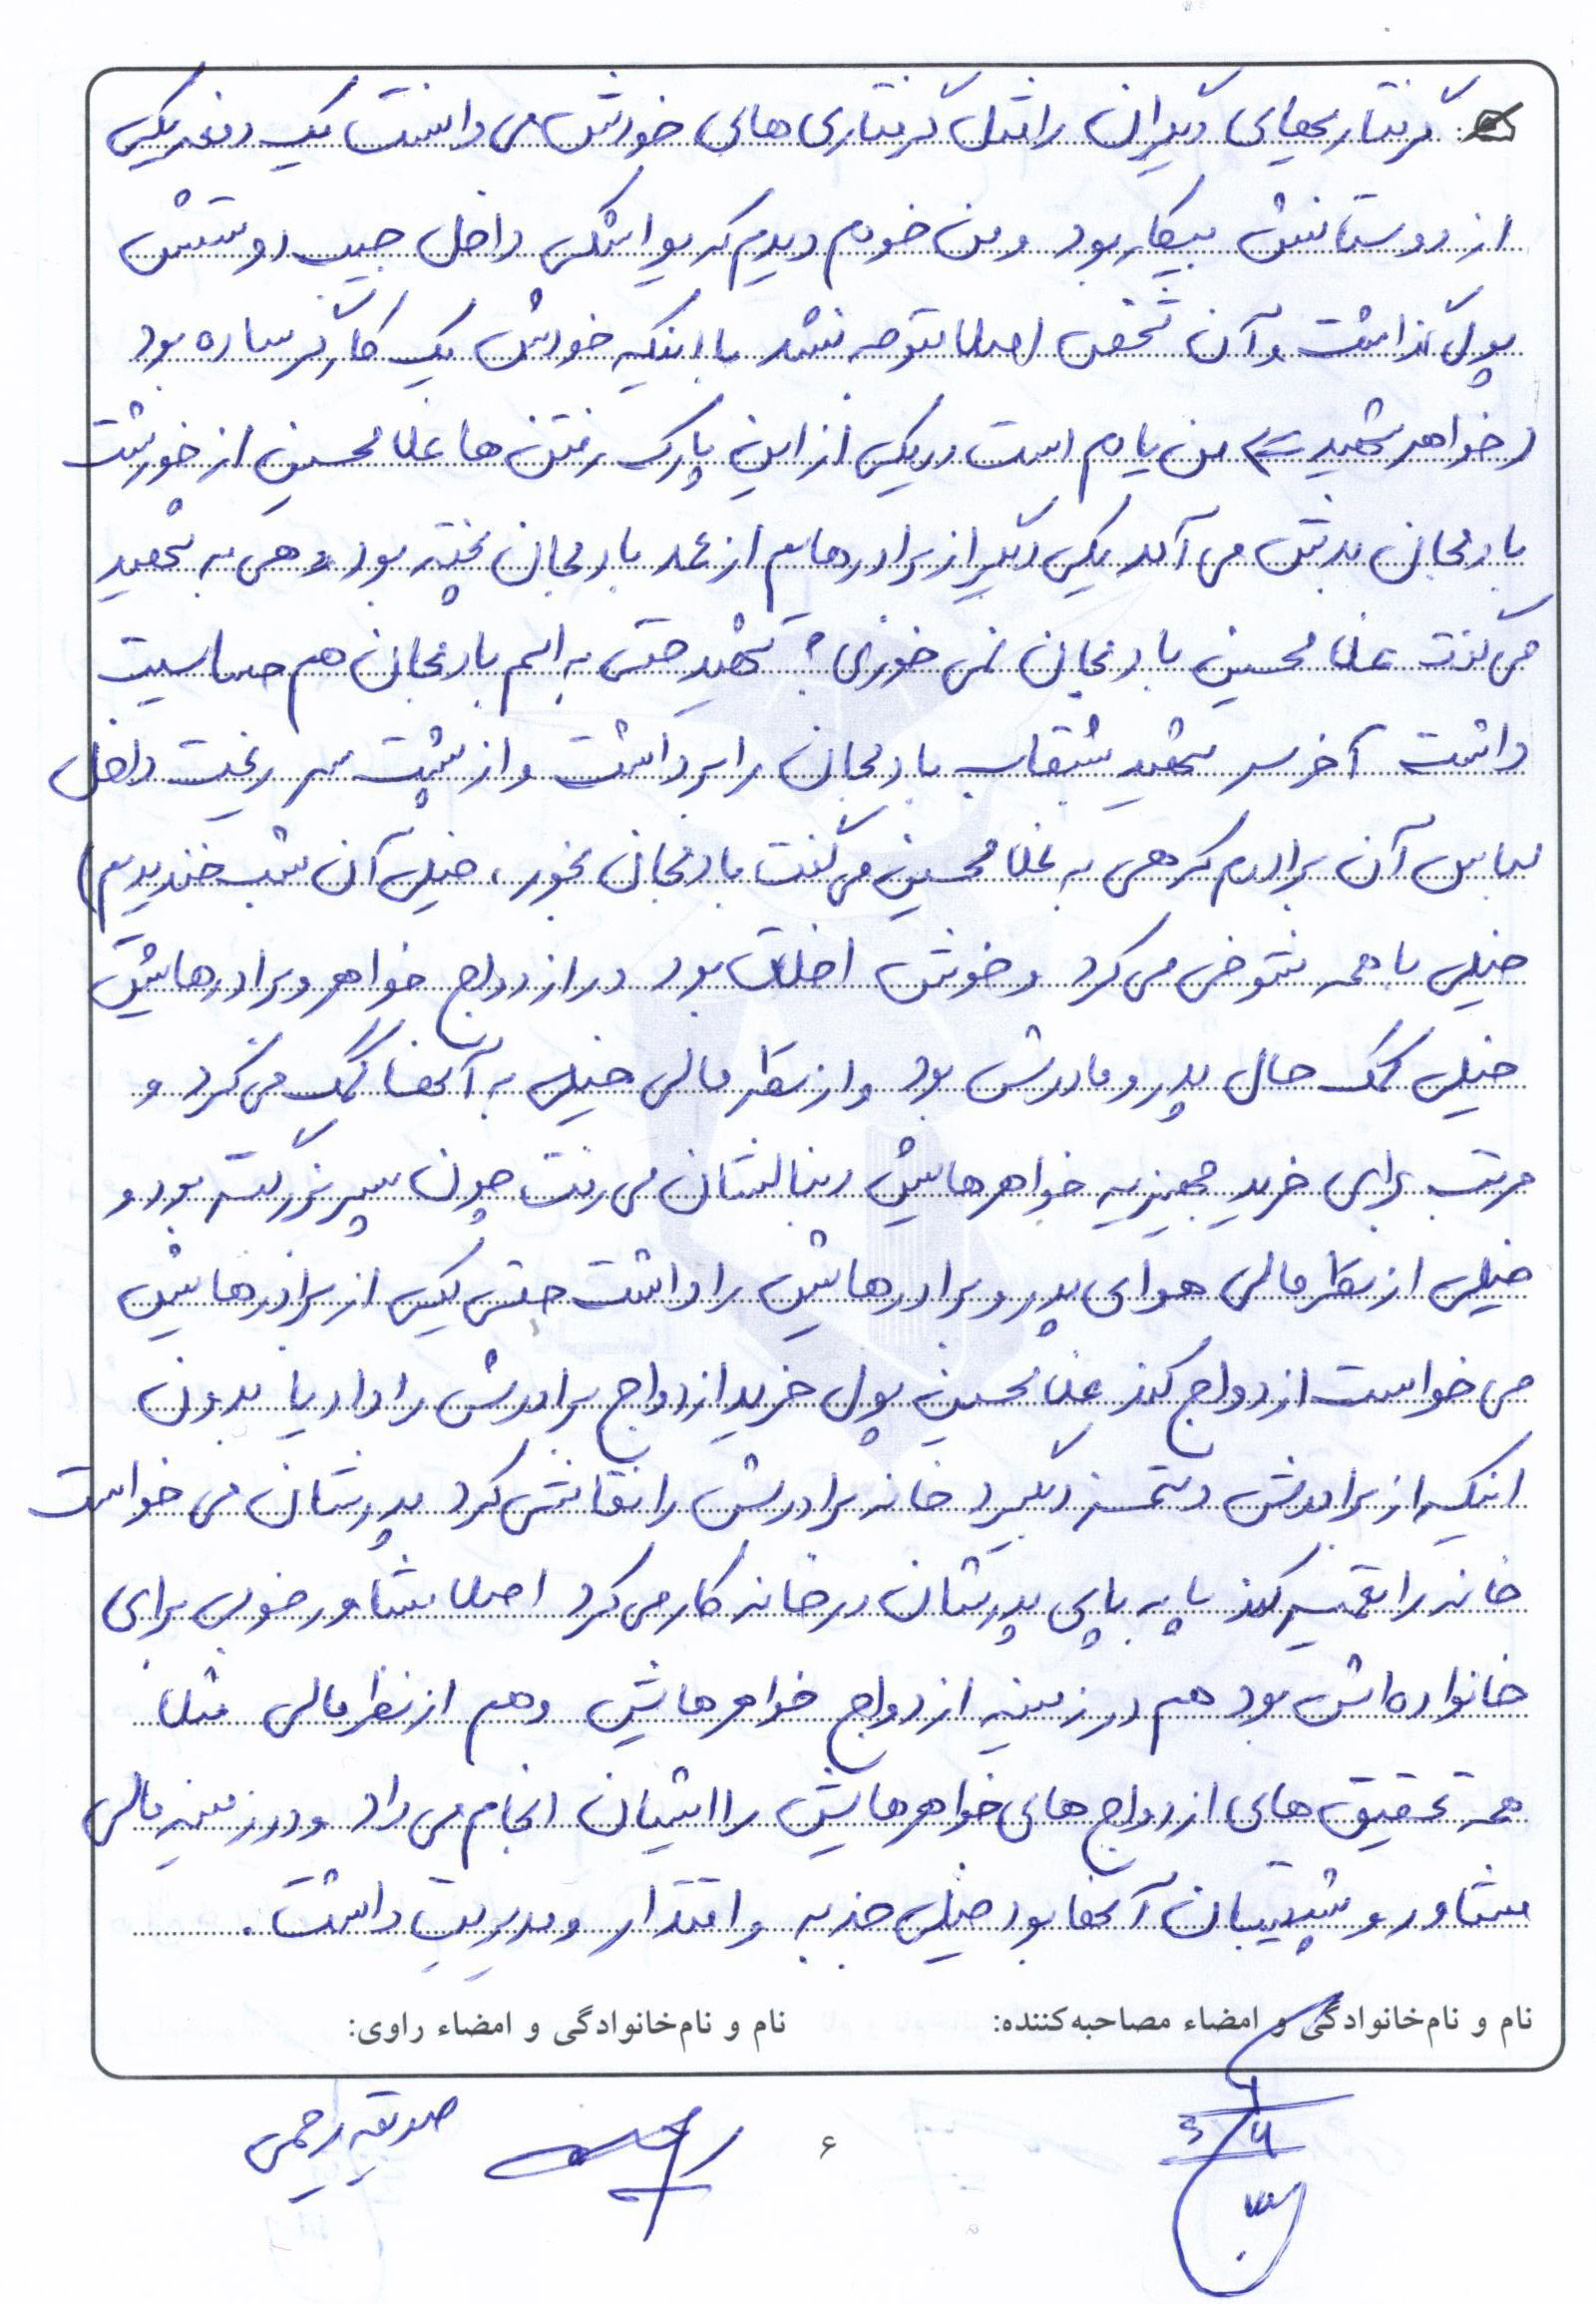 گرفتاریهای دیگران را مثل گرفتاری های خودش می دانست یک دفعه یکی
از دوستانش بیکار بود و من خودم دیدم که یواشکی داخل جیب دوستش
پول گذاشت و آن شخص اصلا متوجه نشد با اینکه خودش یک کارگر ساده بود
(خواهر شهید => من یادم است در یکی از این پارک رفتن ها غلامحسین از خورشت
بادمجان بدش می آمد یکی دیگر از برادرهایم از عمد بادمجان پخته بود و هی به شهید
می گفت غلامحسین بادمجان نمی خوری؟ شهید حتی به اسم بادمجان هم حساسیت
داشت آخر سر شهید بشقاب بادمجان را برداشت و از پشت سر ریخت داخل
لباس آن برادرم که هی به غلامحسین می گفت بادمجان بخور، خیلی آن شب خندیدیم)
خیلی با همه شوخی می کرد و خوش اخلاق بود در ازدواج خواهر و برادرهایش
خیلی کمک حال پدر و مادرش بود و از نظر مالی خیلی به آنها کمک می کرد و
مرتب برای خرید جهیزیه خواهرهایش دنبالشان می رفت چون پسر بزرگتر بود و
خیلی از نظر مالی هوای پدر و برادرهایش را داشت حتی یکی از برادرهایش
می خواست ازدواج کند غلامحسین پول خرید ازدواج برادرش را داد یا بدون
اینکه از برادرش دستمزد بگیرد خانه برادرش را نقاشی کرد پدرشان می خواست
خانه را تعمیر کند پا به پای پدرشان در خانه کار می کرد اصلا مشاور خوبی برای
خانواده اش بود هم در زمینه ازدواج خواهرهایش و هم از نظر مالی مثلا
همه تحقیق های ازدواج های خواهرهایش را ایشان انجام می داد و در زمینه مالی
مشاور و پشتیبان آنها بود خیلی جذبه و اقتدار و مدیریت داشت.
نام و نام‌خانوادگی و امضاء مصاحبه‌کننده: نام و نام‌خانوادگی و امضاء راوی:
صدیقه رحیمی
۶